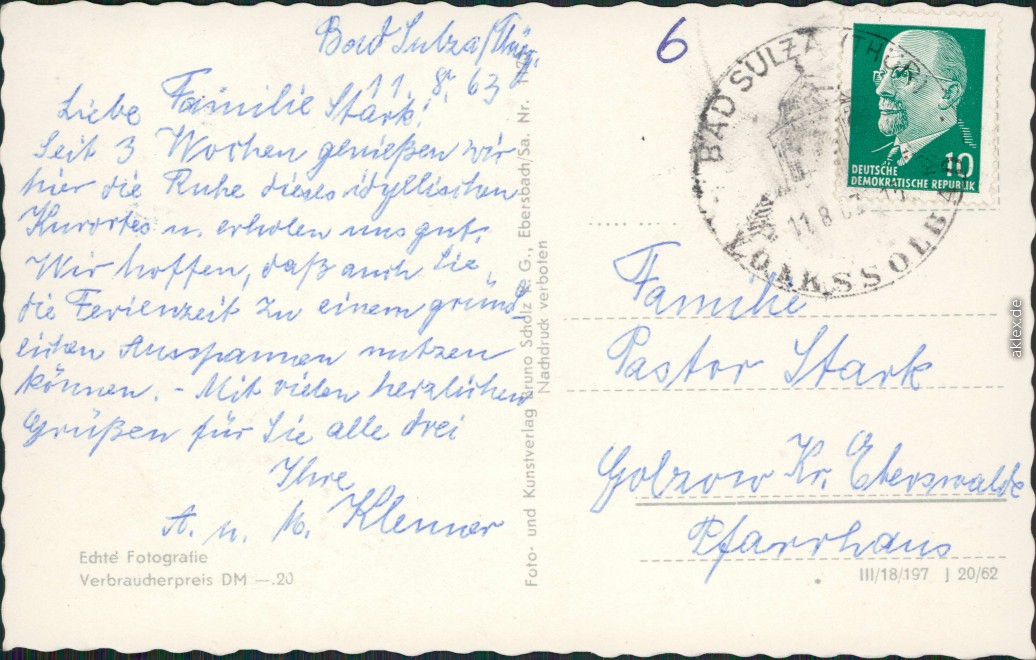 Bad Sulza/Thür.
11. 8. 63
Liebe Familie Stark!
Seit 3 Wochen genießen wir
hier die Ruhe dieses idyllischen
Kurortes u. erholen uns gut.
Wir hoffen, daß auch Sie
die Ferienzeit zu einem gründ-
lichen Ausspannen nutzen
können. - Mit vielen herzlichen
Grüßen für Sie alle drei
Ihre
A. u. M. Klemer
Echte Fotografie
Verbraucherpreis DM —.20
Foto- und Kunstverlag Bruno Scholz K. G., Ebersbach/Sa. Nr.
Nachdruck verboten
6
BAD SULZA (THÜR)
11.8.63
VOLKSSOLBAD
DEUTSCHE
DEMOKRATISCHE REPUBLIK
10
Familie
Pastor Stark
Golzow Kr. Eberswalde
Pfarrhaus
III/18/197 J 20/62
aklex.de